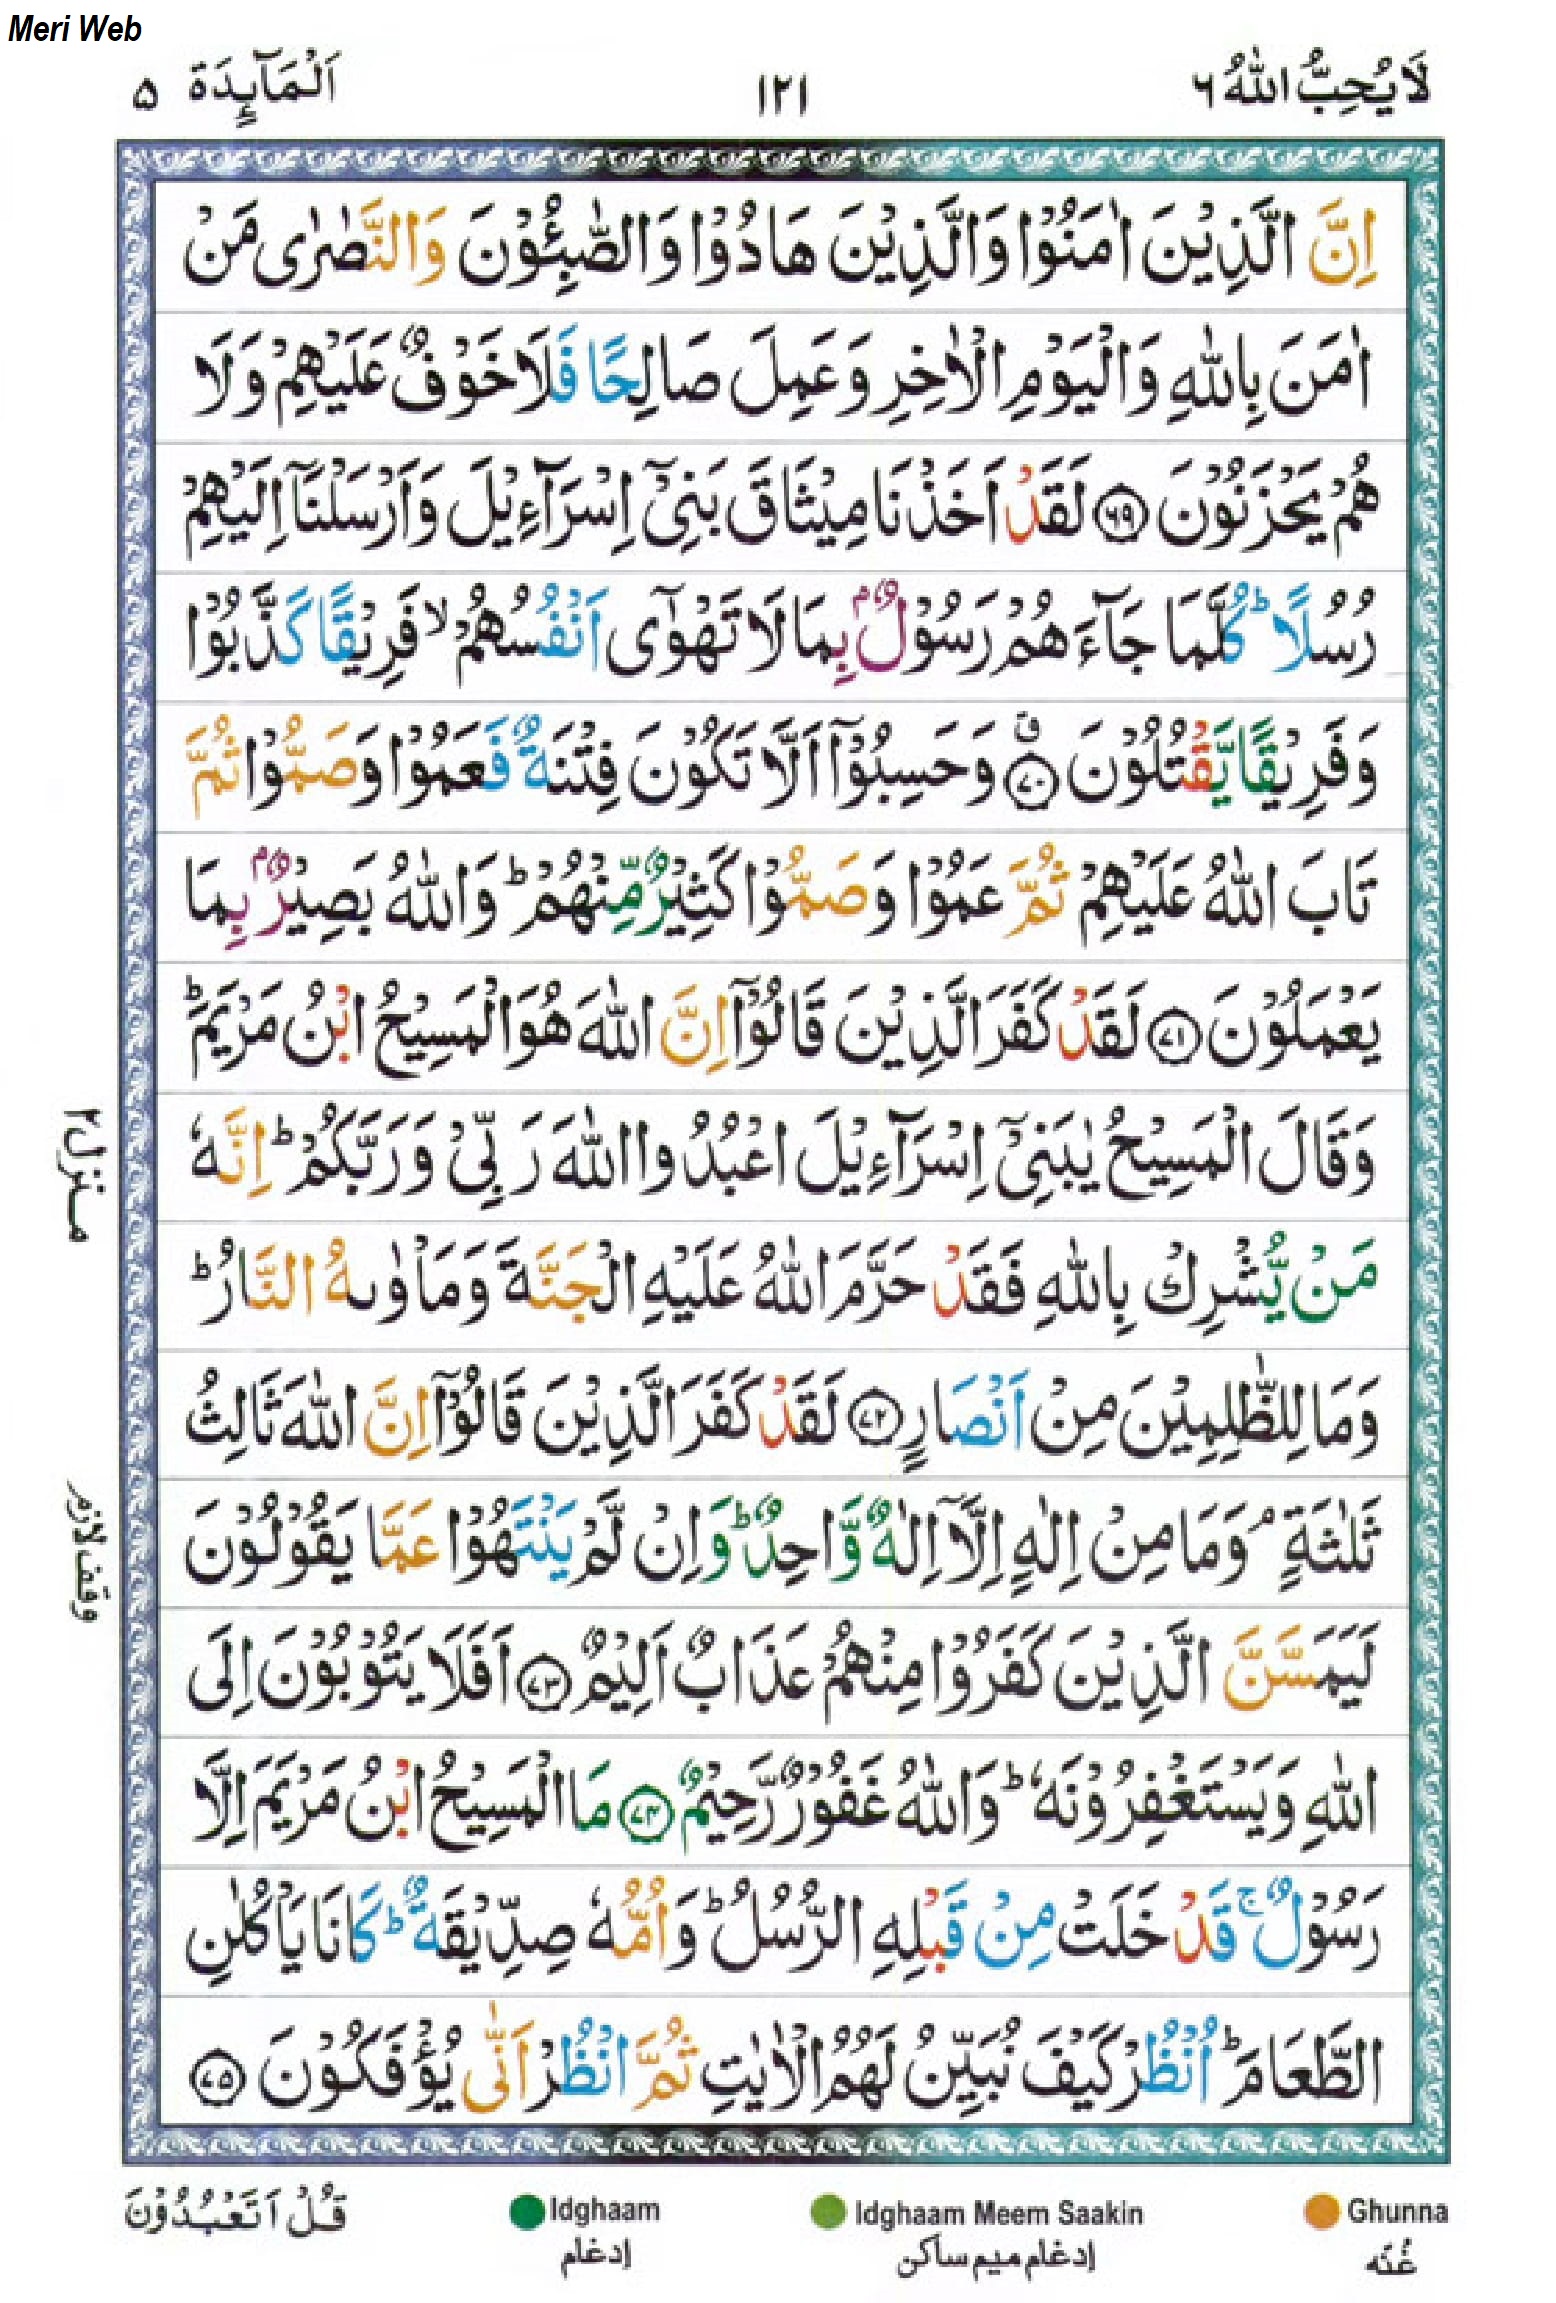 Meri Web
لَا يُحِبُّ اللّٰهُ ۶
۱۲۱
اَلْمَآئِدَة ۵
اِنَّ الَّذِيْنَ اٰمَنُوْا وَالَّذِيْنَ هَادُوْا وَالصّٰبِـُٔوْنَ وَالنَّصٰرٰى مَنْ
اٰمَنَ بِاللّٰهِ وَالْيَوْمِ الْاٰخِرِ وَعَمِلَ صَالِحًا فَلَا خَوْفٌ عَلَيْهِمْ وَلَا
هُمْ يَحْزَنُوْنَ ۶۹ لَقَدْ اَخَذْنَا مِيْثَاقَ بَنِيْٓ اِسْرَآءِيْلَ وَاَرْسَلْنَآ اِلَيْهِمْ
رُسُلًا ؕ كُلَّمَا جَآءَهُمْ رَسُوْلٌۢ بِمَا لَا تَهْوٰٓى اَنْفُسُهُمْ ۙ فَرِيْقًا كَذَّبُوْا
وَفَرِيْقًا يَّقْتُلُوْنَ ۷۰ ۗ وَحَسِبُوْٓا اَلَّا تَكُوْنَ فِتْنَةٌ فَعَمُوْا وَصَمُّوْا ثُمَّ
تَابَ اللّٰهُ عَلَيْهِمْ ثُمَّ عَمُوْا وَصَمُّوْا كَثِيْرٌ مِّنْهُمْ ؕ وَاللّٰهُ بَصِيْرٌۢ بِمَا
يَعْمَلُوْنَ ۷۱ لَقَدْ كَفَرَ الَّذِيْنَ قَالُوْٓا اِنَّ اللّٰهَ هُوَ الْمَسِيْحُ ابْنُ مَرْيَمَ ؕ
وَقَالَ الْمَسِيْحُ يٰبَنِيْٓ اِسْرَآءِيْلَ اعْبُدُوا اللّٰهَ رَبِّيْ وَرَبَّكُمْ ؕ اِنَّهٗ
مَنْ يُّشْرِكْ بِاللّٰهِ فَقَدْ حَرَّمَ اللّٰهُ عَلَيْهِ الْجَنَّةَ وَمَاْوٰىهُ النَّارُ ؕ
وَمَا لِلظّٰلِمِيْنَ مِنْ اَنْصَارٍ ۷۲ لَقَدْ كَفَرَ الَّذِيْنَ قَالُوْٓا اِنَّ اللّٰهَ ثَالِثُ
ثَلٰثَةٍ ۘ وَمَا مِنْ اِلٰهٍ اِلَّآ اِلٰهٌ وَّاحِدٌ ؕ وَاِنْ لَّمْ يَنْتَهُوْا عَمَّا يَقُوْلُوْنَ
لَيَمَسَّنَّ الَّذِيْنَ كَفَرُوْا مِنْهُمْ عَذَابٌ اَلِيْمٌ ۷۳ اَفَلَا يَتُوْبُوْنَ اِلَى
اللّٰهِ وَيَسْتَغْفِرُوْنَهٗ ؕ وَاللّٰهُ غَفُوْرٌ رَّحِيْمٌ ۷۴ مَا الْمَسِيْحُ ابْنُ مَرْيَمَ اِلَّا
رَسُوْلٌ ۚ قَدْ خَلَتْ مِنْ قَبْلِهِ الرُّسُلُ ؕ وَاُمُّهٗ صِدِّيْقَةٌ ؕ كَانَا يَاْكُلٰنِ
الطَّعَامَ ؕ اُنْظُرْ كَيْفَ نُبَيِّنُ لَهُمُ الْاٰيٰتِ ثُمَّ انْظُرْ اَنّٰى يُؤْفَكُوْنَ ۷۵
منزل ۲
وقف لازم
قُلْ اَتَعْبُدُوْنَ
Idghaam
إدغام
Idghaam Meem Saakin
إدغام ميم ساكن
Ghunna
غُنّه